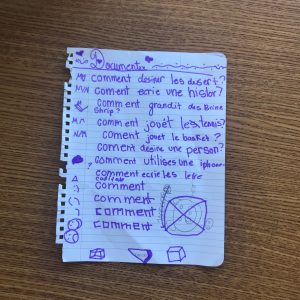 Documenter
comment desiner les desert?
coment ecrie une histoir?
comment grandit des Brine
Shrip?
comment jouét les tennis?
coment jouet le basket?
coment désine une person?
comment utilises une iphone
comment ecrie les letre
comment
comment
comment
comment